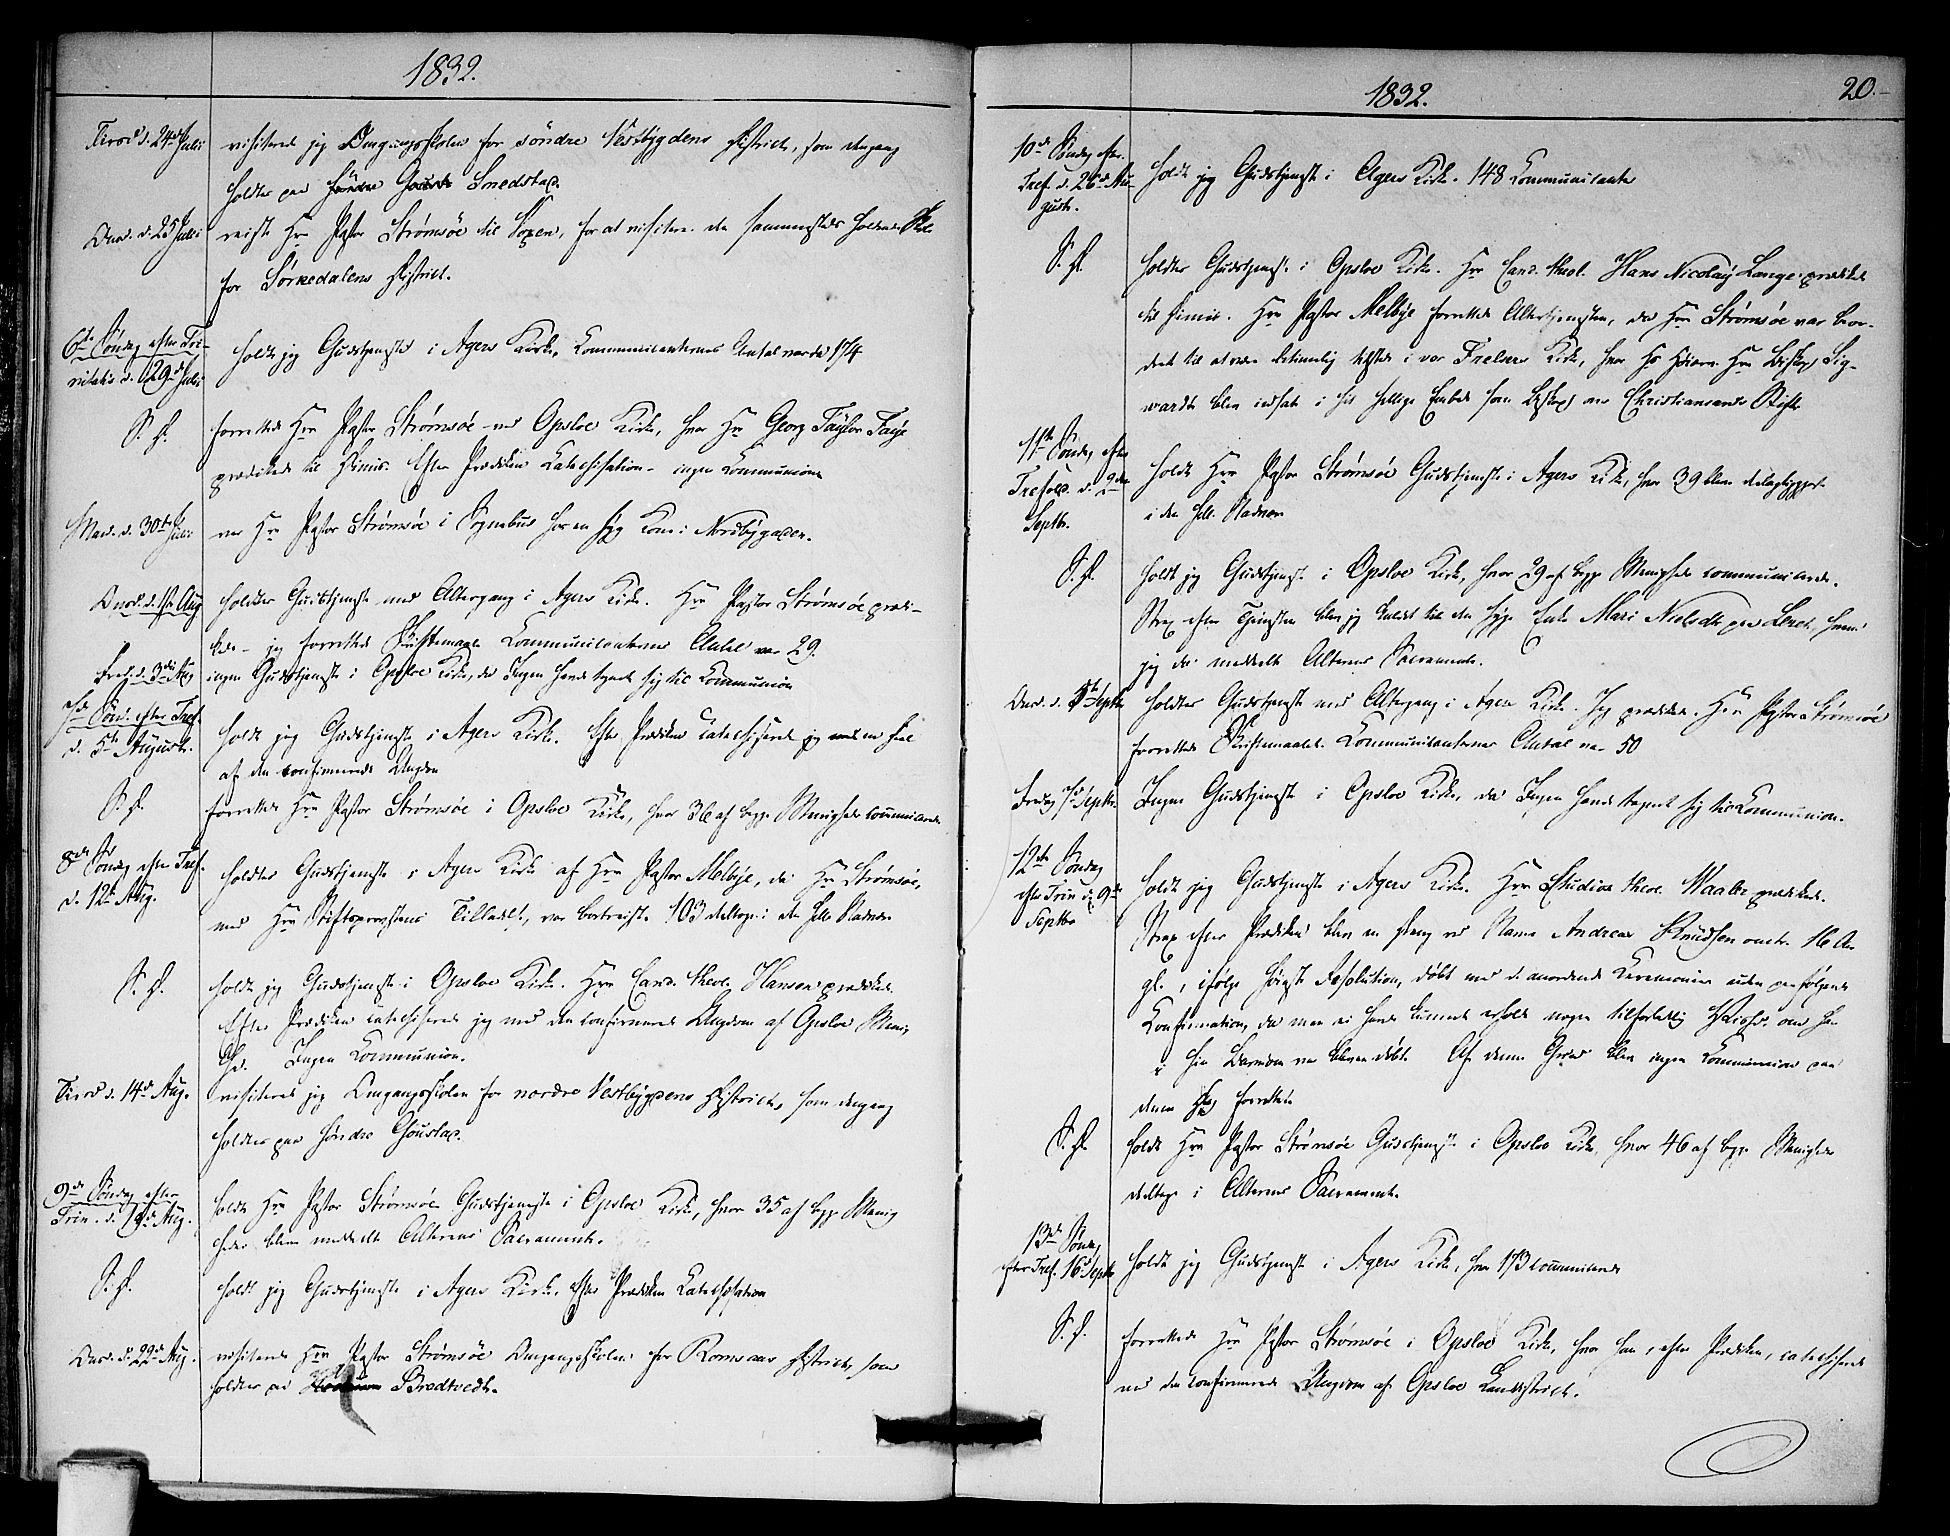 1832.
Tirsd. d. 24d Juli visiterede jeg Omgangsskolen for söndre Vestbygdens District, som dengang
holdtes paa Smedstad.
Onsd. d. 25 Juli reiste Hr Pastor Strømsöe til Voxen, for at visitere den sammesteds holdende Skole
for Sörkedalens District.
6te Söndag efter Tri-
nitatis d. 29d Juli holdt jeg Gudstjeneste i Agers Kirke, Communicanternes Antal var da 174
S. D. forrettede Hr Pastor Strömsöe ved Opsloe Kirke, hvor Hr Georg Taylor Faye
prædikede til Dimis. Efter Prædiken Catechisation - ingen Communion
Mand. d. 30te Juli var Hr Pastor Strömsöe i Sognebud hos en syg Kone i Nordbygaden.
Onsd. d. 1ste Aug holdtes Gudstjeneste med Altergang i Agers Kirke. Hr Pastor Strömsöe prædi-
kede - jeg forrettede Skriftemaalet Communicanternes Antal var 29.
Fred. d. 3die Aug ingen Gudstjeneste i Opsloe Kirke, da Ingen havde tegnet sig til Communion
7de Sönd. efter Tref.
d. 5te August. holdt jeg Gudstjeneste i Agers Kirke. Efter Prædiken catechiserede jeg med en Deel
af den confirmerede Ungdom
S. D. forrettede Hr Pastor Strömsöe i Opsloe Kirke, hvor 36 af begge Menigheder communicerede
8de Söndag efter Tref.
d. 12te Aug. holdtes Gudstjeneste i Agers Kirke af Hr Pastor Melbye, da Hr Strömsöe,
med Hr Stiftsprovstens Tilladelse, var bortreist. 103 deeltoge i den hell. Nadvere
S. D. holdt jeg Gudstjeneste i Opsloe Kirke. Hr Cand. theol. Hansen prædikede.
Efter Prædiken catechiserede jeg med den confirmerede Ungdom af Opsloe Menig-
hed. Ingen Communion.
Tirsd d. 14d Aug. visiterede jeg Omgangsskolen for nordre Vestbygdens District, som dengang
holdtes paa söndre Goustad.
9de Söndag efter
Trin. d. 19de Aug. holdt Hr Pastor Strömsöe Gudstjeneste i Opsloe Kirke, hvor 35 af begge Menig-
heder bleve meddeelt Alterens Sacramente.
S. D. holdt jeg Gudstjeneste i Agers Kirke. Efter Prædiken Catechisation
Onsd. d. 22d Aug. visiterede Hr Pastor Strömsöe Omgangsskolen for Romsaas District, som
holdtes paa Bredtvedt.
1832.
20.
10de Söndag efter
Tref. d. 26de Au-
gust. holdt jeg Gudstjeneste i Agers Kirke. 148 Communicanter
S. D. holdtes Gudstjeneste i Opsloe Kirke. Hr Cand. theol. Hans Nicolay Lange prædikede
til Dimis. Hr Pastor Melbye forrettede Altertjenesten, da Hr Strömsöe var beor-
dret til at være tilstede i vor Frelsers Kirke, hvor Hr Biskop Sig-
wardt blev indsat i sit hellige Embede som Biskop over Christiansands Stift
11te Söndag efter
Trefold. d. 2den
Septbr. holdt Hr Pastor Strömsöe Gudstjeneste i Agers Kirke, hvor 39 bleve deelagtiggjorte
i den hell. Nadvere
S. D. holdt jeg Gudstjeneste i Opsloe Kirke, hvor 29 af begge Menigheder communicerede.
Strax efter Tjenesten blev jeg kaldet til den syge Enke Mari Nielsdtr paa hvem
jeg da meddelte Alterens Sacramente.
Onsd. d. 5te Septbr holdtes Gudstjeneste med Altergang i Agers Kirke. Jeg prædikede. Hr Pastor Strömsöe
forrettede Skriftemaalet. Communicanternes Antal var 50
Fredag 7de Septbr. Ingen Gudstjeneste i Opsloe Kirke, da Ingen havde tegnet sig til Communion.
12te Söndag
efter Trin d. 9de
Septbr holdt jeg Gudstjeneste i Agers Kirke. Hr Studios. theol. Maaler prædikede.
Strax efter Prædiken blev en Dreng ved Navn Andreas Knudsen omtr. 16 Aar
gl., ifølge höieste Resolution, döbt med de anordnede Ceremonier uden paafölgende
Confirmation, da man ei havde kunnet erholde nogen tilforladelig Vished om han
i sin Barndom var bleven döbt. Af denne Grund blev ingen Communion paa
denne Dag forrettet.
S. D. holdt Hr Pastor Strömsöe Gudstjeneste i Opsloe Kirke, hvor 46 af begge Menigheder
deeltoge i Alterens Sacramente.
13de Sönd.
efter Tref. 16d Septbr holdt jeg Gudstjeneste i Agers Kirke, hvor 173 communicerede
S. D. forrettede Hr Pastor Strömsöe i Opsloe Kirke, hvor han, efter Prædiken, catechiserede
med den confirmerede Ungdom af Opsloe Landdistrict.